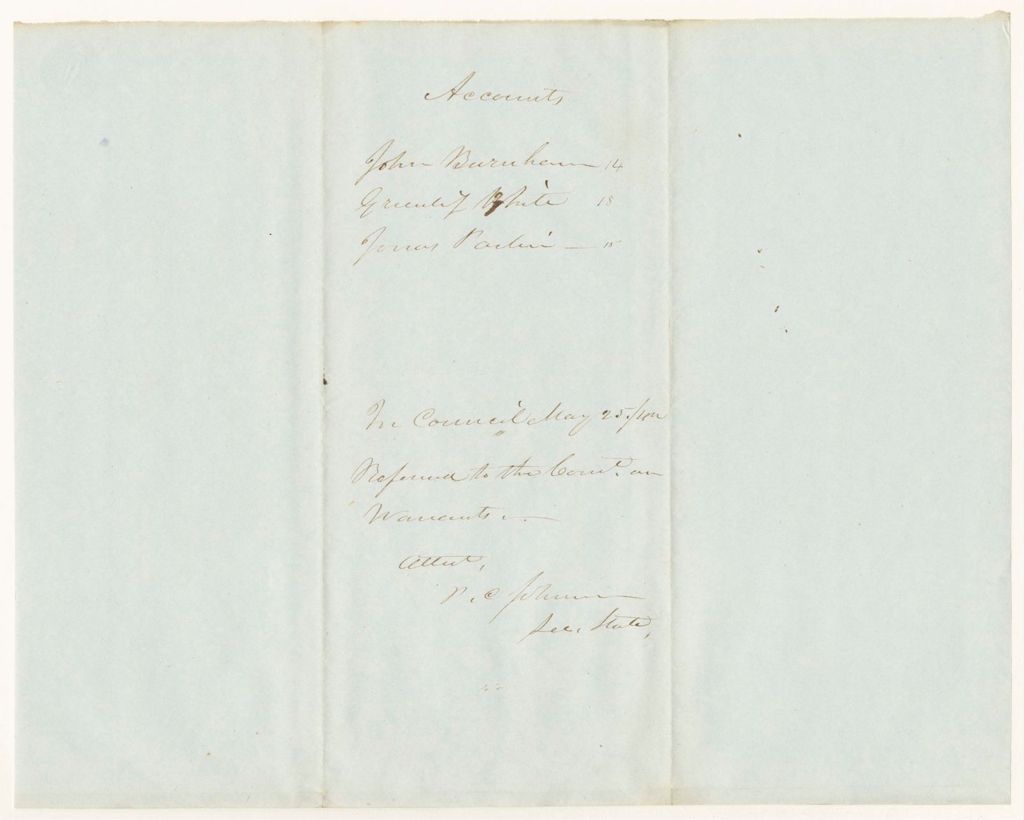 Accounts
John Burnham 14
Greenlief White 18
Jonas Parlin — 15
In Council May 25/42
Referred to the Comt. on
Warrants.—
Attest,
P. C. Johnson
Sec. State,